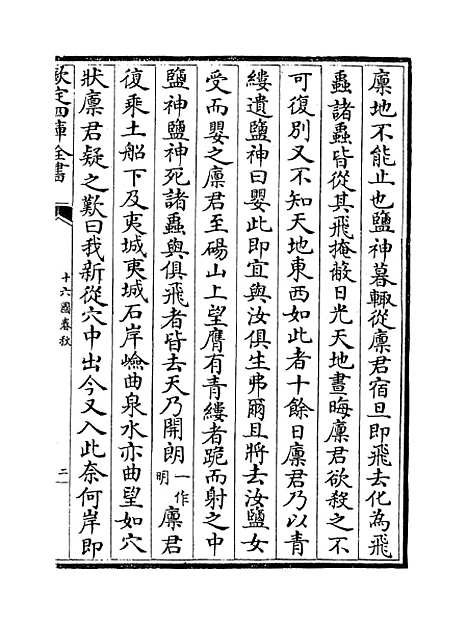 廩地不能止也鹽神暮輙從廩君宿旦即飛去化為飛
蟲諸蟲皆從其飛掩蔽日光天地晝晦廩君欲殺之不
可復别又不知天地東西如此者十餘日廩君乃以青
縷遺鹽神曰嬰此即宜與汝俱生弗爾且將去汝鹽女
受而嬰之廩君至碭山上望膺有青縷者跪而射之中
鹽神鹽神死諸蟲與俱飛者皆去天乃開朗一作明廩君
復乘土船下及夷城夷城石岸嶮曲泉水亦曲望如穴
狀廩君疑之歎曰我新從穴中出今又入此奈何岸即
欽定四庫全書
十六國春秋
二